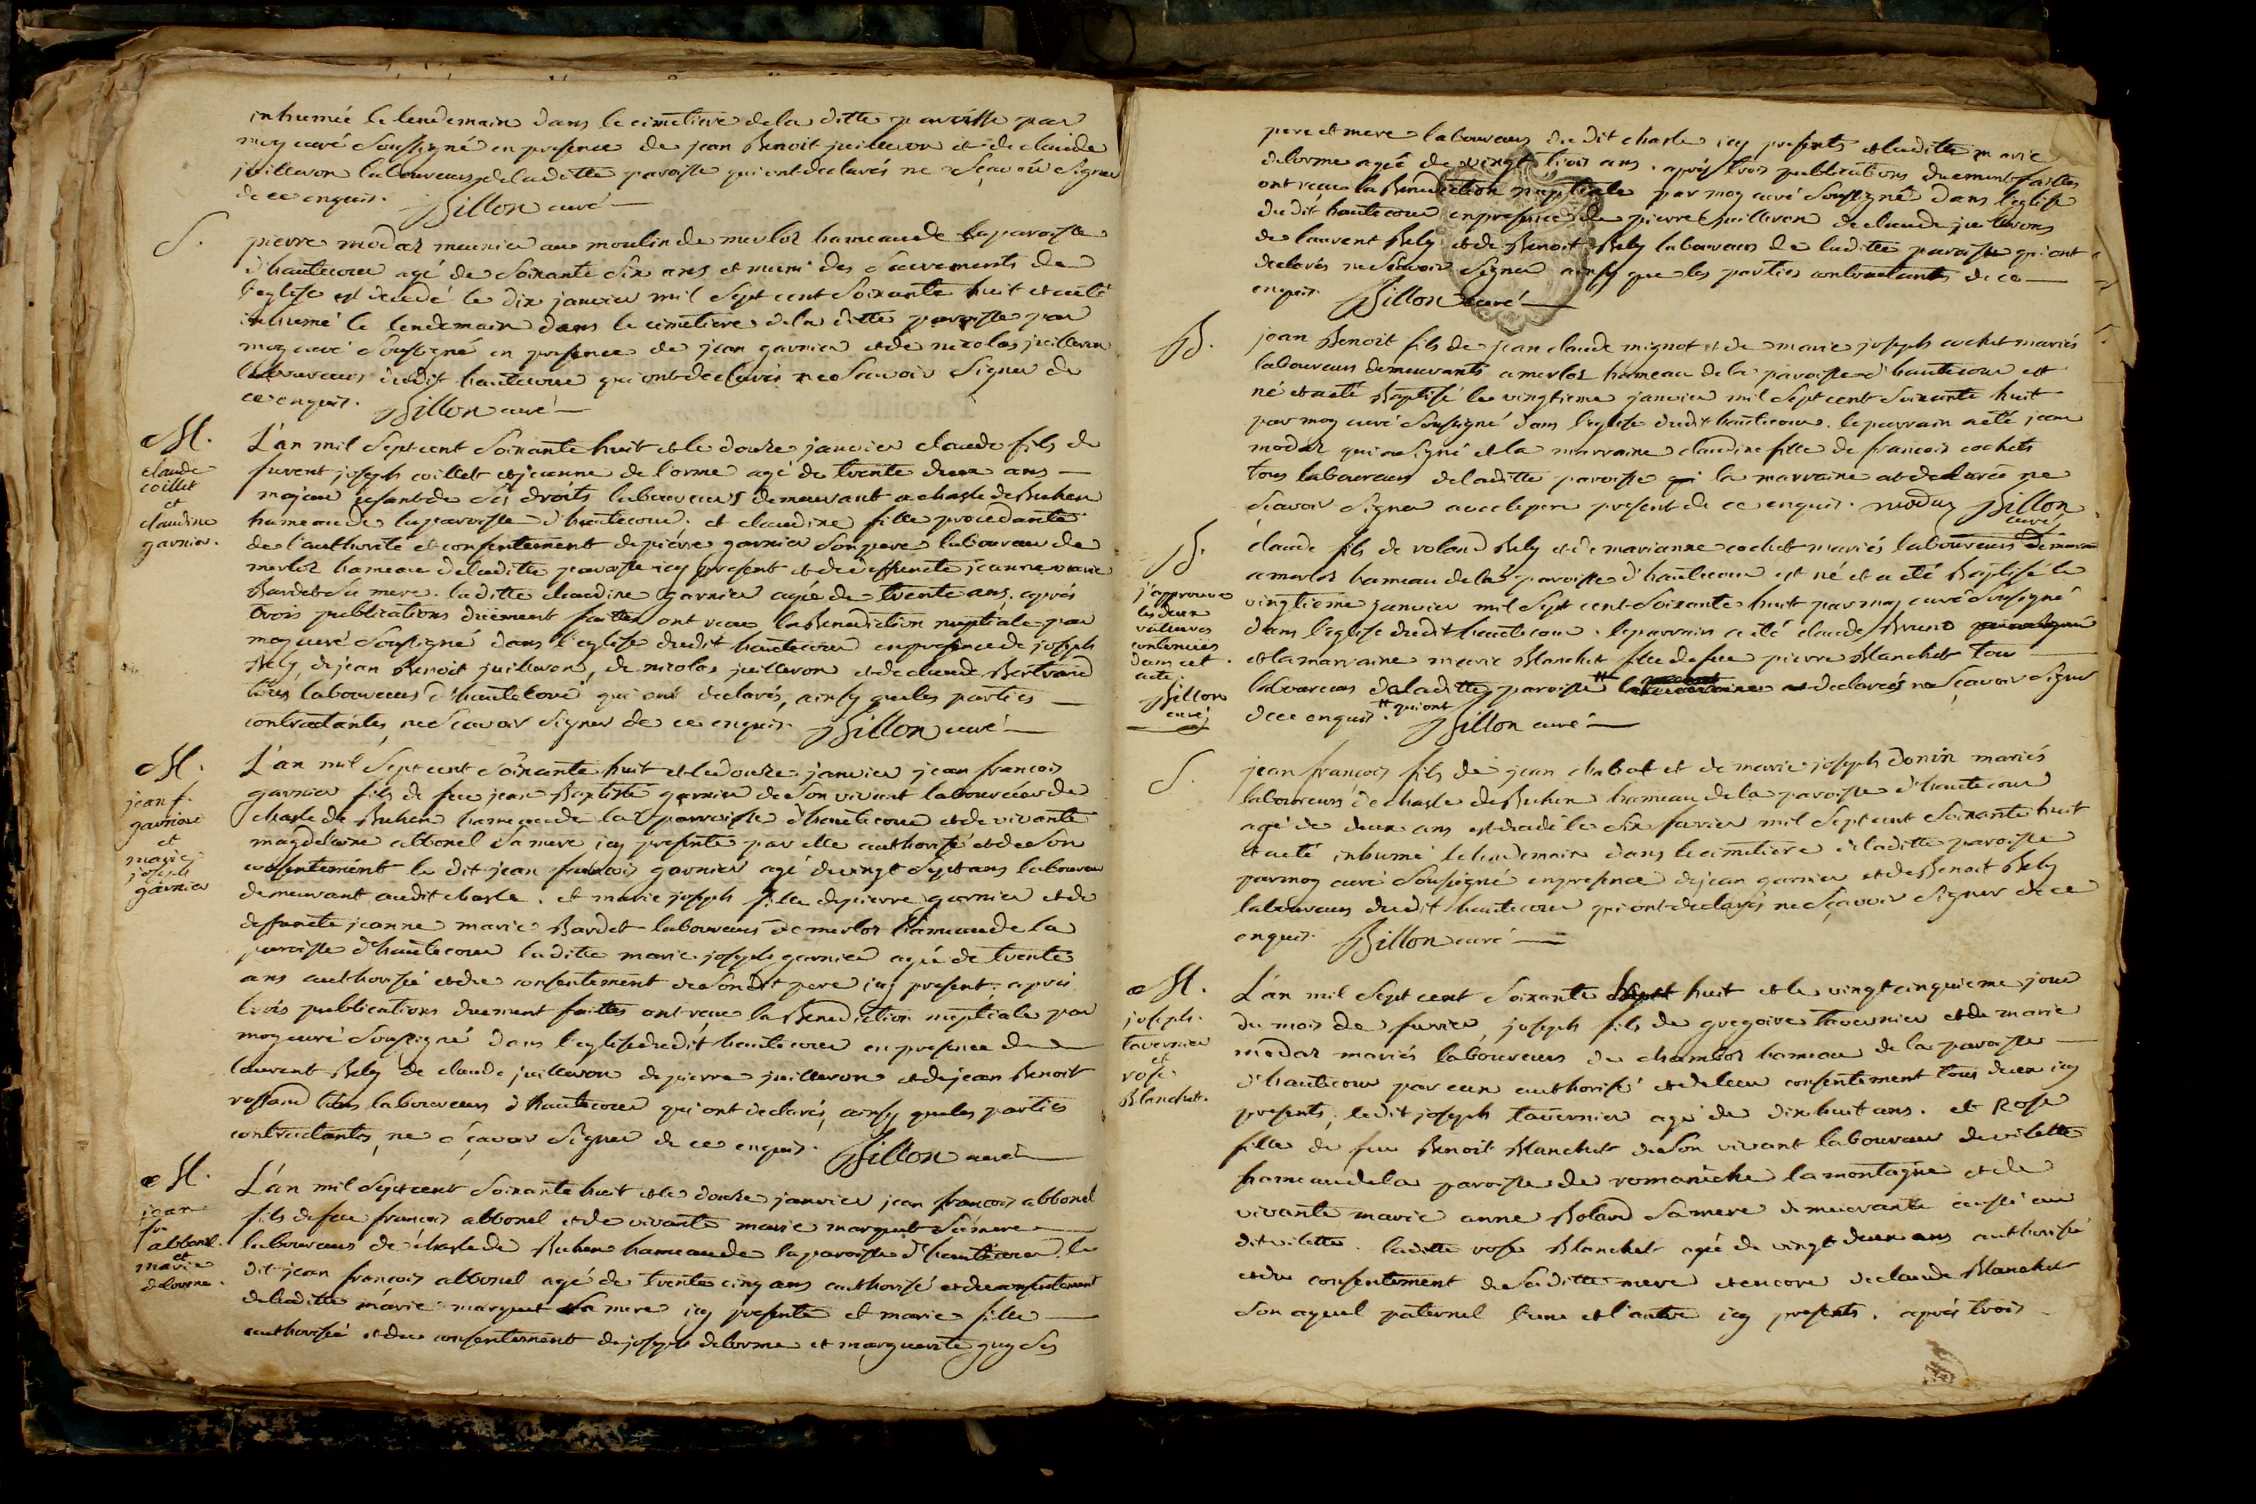 inhumée le lendemain dans le cimetiere de la ditte paroisse par
moy curé soussigné en presence de jean Benoit juilleron et de claude
juilleron laboureurs de laditte paroisse qui ont declarés ne sçavoir signer
de ce enquis. Billon curé
S.
pierre modas meunier au moulin de merlos hameau de la paroisse
d'hautecour agé de soixante six ans et muni des sacrements de
l'eglise est decedé le dix janvier mil sept cent soixante huit et a eté
inhumé le lendemain dans le cimetiere de la ditte paroisse par
moy curé soussigné en presence de jean garnier et de nicolas juilleron
laboureurs dudit hautecour qui ont declarés ne sçavoir signer de
ce enquis. Billon curé
M.
claude
coillet
et
claudine
garnier.
L'an mil sept cent soixante huit et le douze janvier claude fils de
furent joseph coillet et jeanne de l'orme agé de trente deux ans
majeur usant de ses droits laboureurs demeurant a chasle de Buhen
hameau de la paroisse d'hautecour. et claudine fille procedante
de l'authorité et consentement de pierre garnier son pere laboureur de
merlos hameau de laditte paroisse icy present et de deffuncte jeanne marie
Bardet sa mere. laditte claudine garnier agée de trente ans. aprés
trois publications düement faittes ont reçu la Benediction nuptiale par
moy curé soussigné dans l'eglise dudit hautecour en presence de joseph
Bely, de jean Benoit juilleron, de nicolas juilleron et de claude Bertrand
tous laboureurs d'hautecour qui ont declarés, ainsy que les parties
contractantes, ne sçavoir signer de ce enquis. Billon curé
M.
jean f.
garnier
et
marie
joseph
garnier
L'an mil sept cent soixante huit et le douze janvier jean françois
garnier fils de feu jean Baptiste garnier de son vivant laboureur de
chasle de Buhen hameau de la paroisse d'hautecour et de vivante
magdelaine abbonel sa mere icy presente par elle authorisé et de son
consentement le dit jean françois garnier agé de vingt sept ans laboureur
demeurant audit chasle. et marie joseph fille de pierre garnier et de
deffuncte jeanne marie Bardet laboureurs de merlos hameau de la
paroisse d'hautecour laditte marie joseph garnier agée de trente
ans authorisée et du consentement de son dit pere icy present. aprés
trois publications duement faittes ont reçu la Benediction nuptiale par
moy curé soussigné dans l'eglise dudit hautecour en presence de
laurent Bely de claude juilleron de pierre juilleron et de jean Benoit
rossand tous laboureurs d'hautecour qui ont declarés, ainsy que les parties
contractantes, ne sçavoir signer de ce enquis. Billon curé
M.
jean
fr.
abbonel
et
marie
delorme.
L'an mil sept cent soixante huit et le douze janvier jean françois abbonel
fils de feu françois abbonel et de vivante marie marguet sa mere
laboureurs de chasle de Buhen hameau de la paroisse d'hautecour. le
dit jean françois abbonel agé de trente cinq ans authorisé et du consentement
de laditte marie marguet sa mere icy presente et marie fille
authorisée et du consentement de joseph delorme et marguerite guy ses
pere et mere laboureurs du dit chasle icy presents et laditte marie
delorme agée de vingt trois ans. aprés trois publications duement faittes
ont reçu la Benediction nuptiale par moy curé soussigné dans l'eglise
du dit hautecour en presence de pierre juilleron de claude juilleron
de laurent Bely et de Benoit Bely laboureurs de laditte paroisse qui ont
declarés ne sçavoir signer ainsy que les parties contractants de ce
enquis. Billon curé
B.
jean Benoit fils de jean claude mignot et de marie joseph cochet mariés
laboureurs demeurants a merlos hameau de la paroisse d'hautecour est
né et a eté Baptisé le vingtieme janvier mil sept cent soixante huit
par moy curé soussigné dans l'eglise dudit hautecour. le parrain a eté jean
modas qui a signé et la marraine claudine fille de francois cochet
tous laboureurs de laditte paroisse la marraine a declarée ne
sçavoir signer avec le pere present de ce enquis. modas Billon
curé
B.
j'approuve
les deux
ratures
contenues
dans cet
acte.
Billon
curé
claude fils de roland Bely et de marianne cochet mariés laboureurs
a merlos hameau de la paroisse d'hautecour est né et a eté Baptisé le
vingtieme janvier mil sept cent soixante huit par moy curé soussigné
dans l'eglise dudit hautecour. le parrain a eté claude Brun
et la marraine marie Blanchet fille de feu pierre Blanchet tous
laboureurs de laditte paroisse declarés ne sçavoir signer
de ce enquis. # qui ont Billon curé
S.
jean françois fils de jean chabot et de marie joseph donin mariés
laboureurs de chasle de Buhen hameau de la paroisse d'hautecour
agé de deux ans est decedé le six fevrier mil sept cent soixante huit
et a eté inhumé le lendemain dans le cimetiere de laditte paroisse
par moy curé soussigné en presence de jean garnier et de Benoit Bely
laboureurs dudit hautecour qui ont declarés ne sçavoir signer de ce
enquis. Billon curé
M.
joseph
tavernier
et
rose
Blanchet.
L'an mil sept cent soixante huit et le vingt cinquieme jour
du mois de fevrier, joseph fils de gregoire tavernier et de marie
modas mariés laboureurs de chambos hameau de la paroisse
d'hautecour par eux authorisé et de leur consentement tous deux icy
presents, ledit joseph tavernier agé de dix huit ans. et Rose
fille de feu Benoit Blanchet de son vivant laboureur de vilette
hameau de la paroisse de romaneche la montagne et de
vivante marie anne Boland sa mere demeurante aussi au
dit vilette. laditte rose Blanchet agée de vingt deux ans authorisée
et du consentement de saditte mere et encore de claude Blanchet
son ayeul paternel l'une et l'autre icy presents. aprés trois